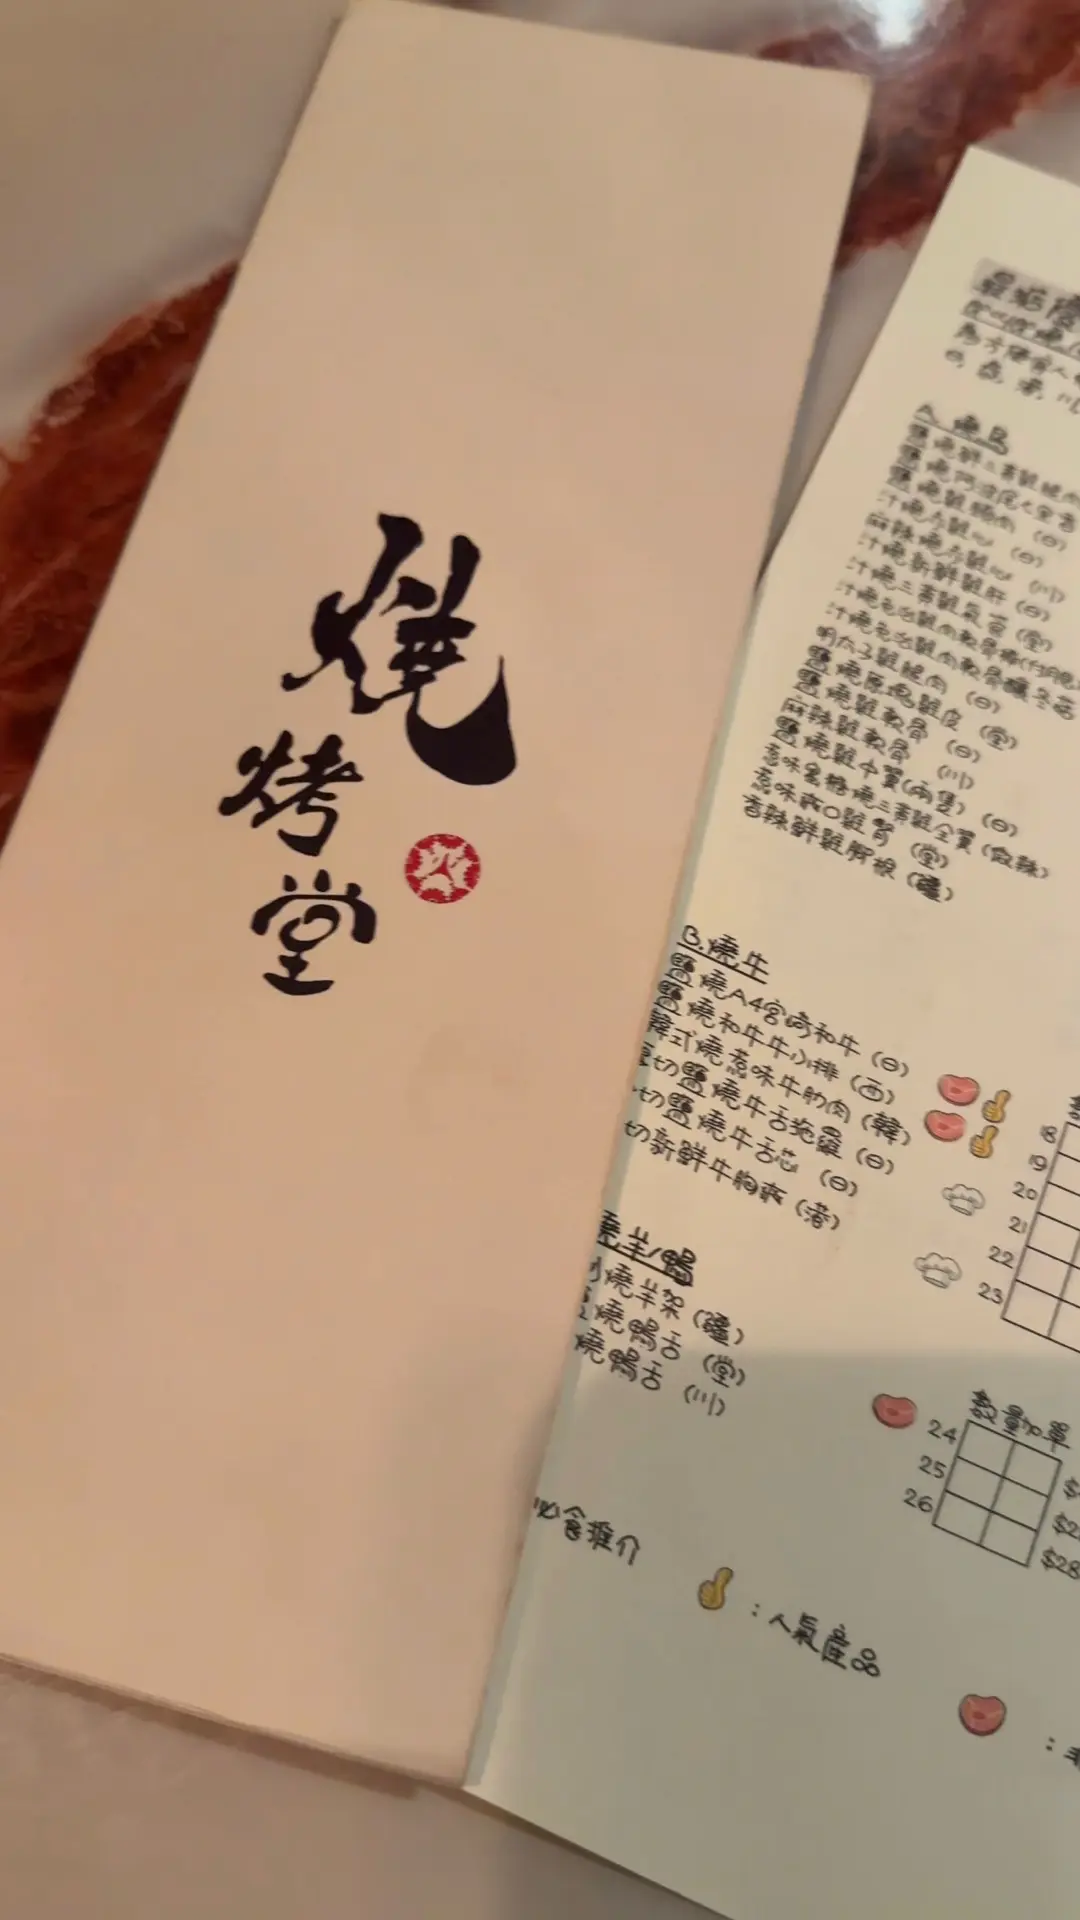 燒
烤
堂
A. 燒鳥
鹽燒雞頸肉 (日)
汁燒冷雞心 (日)
麻辣燒冷雞心 (川)
汁燒新鮮雞肝 (日)
汁燒三黃雞氣管 (堂)
明太子雞腿肉 (日)
鹽燒原塊雞皮 (堂)
鹽燒雞軟骨 (日)
麻辣雞軟骨 (川)
鹽燒雞中翼(兩隻) (日)
惹味蜜糖燒三黃雞全翼 (微辣)
惹味爽口雞腎 (堂)
香辣鮮雞腳根 (疆)
B. 燒牛
鹽燒A4宮崎和牛 (日)
鹽燒和牛牛小排 (西)
韓式燒惹味牛肋肉 (韓)
切鹽燒牛舌拖羅 (日)
切鹽燒牛舌芯 (日)
切新鮮牛胸爽 (港)
18
19
20
21
22
23
燒羊/鴨
燒羊架 (疆)
燒鴨舌 (堂)
燒鴨舌 (川)
數量加單
24
25
26
$28
必食推介
:人氣產品
: